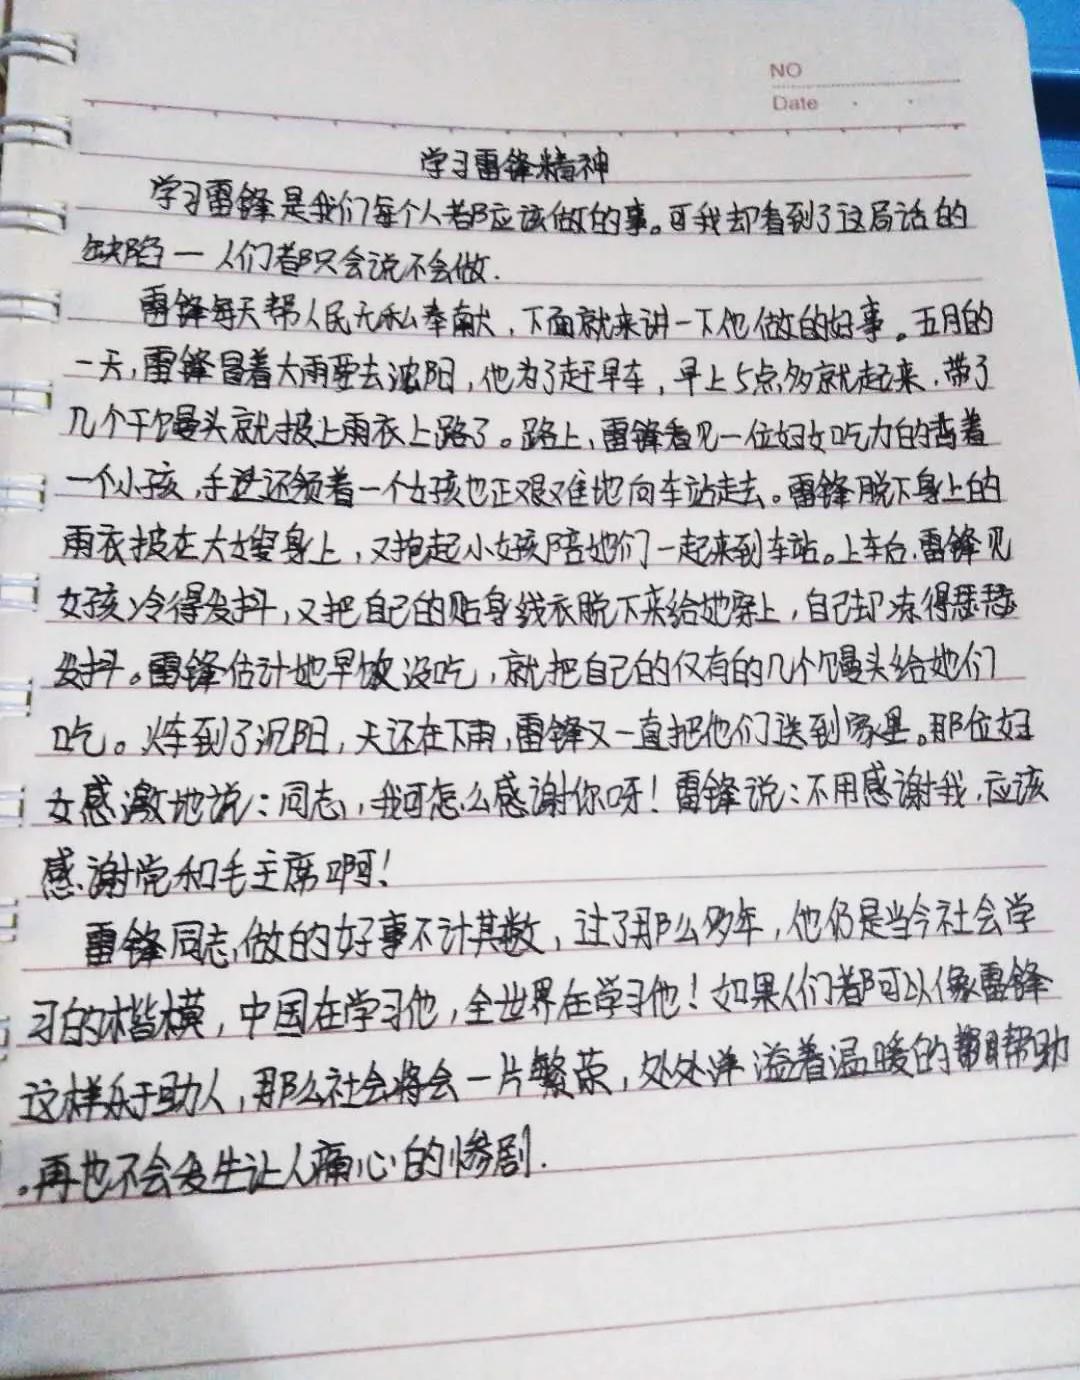 NO
Date
学习雷锋精神
学习雷锋是我们每个人都应该做的事。可我却看到了这局话的
缺陷一人们都只会说不会做.
雷锋每天帮人民无私奉献，下面就来讲一下他做的好事。五月的
一天，雷锋冒着大雨要去沈阳，他为了赶早车，早上5点多就起来，带了
几个干馒头就披上雨衣上路了。路上，雷锋看见一位妇女吃力的背着
一个小孩，手还领着一个女孩也正艰难地向车站走去。雷锋脱下身上的
雨衣披在大嫂身上，又抱起小女孩陪她们一起来到车站。上车后，雷锋见
女孩冷得发抖，又把自己的贴身线衣脱下来给她穿上，自己却冻得瑟瑟
发抖。雷锋估计她早饭没吃，就把自己的仅有的几个馒头给她们
吃。火车到了沉阳，天还在下雨，雷锋又一直把他们送到家里。那位妇
女感激地说：同志，我可怎么感谢你呀！雷锋说：不用感谢我，应该
感谢党和毛主席啊！
雷锋同志，做的好事不计其数，过了那么多年，他仍是当今社会学
习的楷模，中国在学习他，全世界在学习他！如果人们都可以像雷锋
这样乐于助人，那么社会将会一片繁荣，处处洋溢着温暖的帮助
。再也不会发生让人痛心的惨剧.